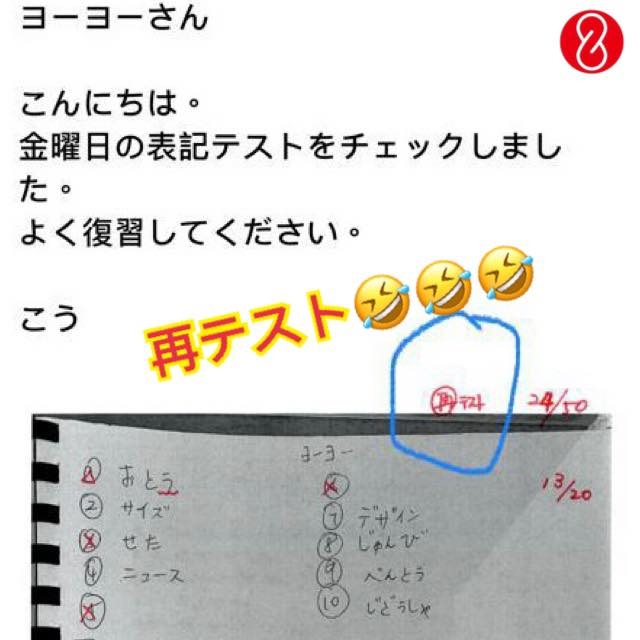 ヨーヨーさん
こんにちは。
金曜日の表記テストをチェックしまし
た。
よく復習してください。
こう
再テスト
再テスト 24/50
ヨーヨー
13/20
① おとう
② サイズ
③ せた
④ ニュース
⑤
⑥
⑦ デザイン
⑧ じゅんび
⑨ べんとう
⑩ じどうしゃ